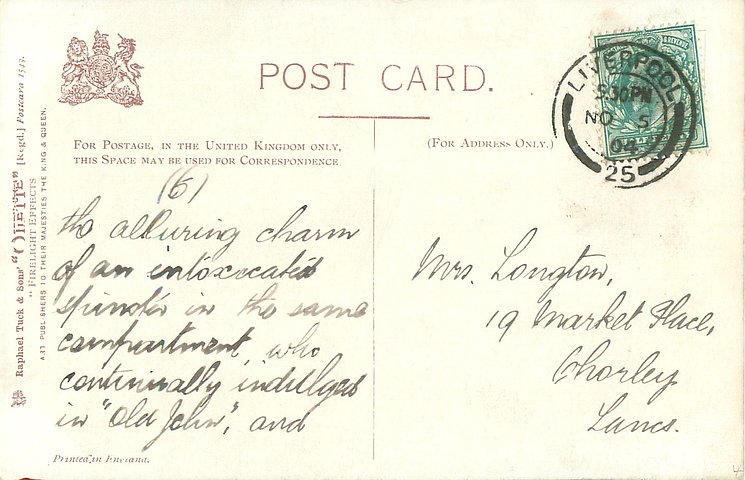 POST CARD.
FOR POSTAGE, IN THE UNITED KINGDOM ONLY,
THIS SPACE MAY BE USED FOR CORRESPONDENCE
(FOR ADDRESS ONLY.)
LIVERPOOL
30 PM
NO 5
04
25
Raphael Tuck & Sons' "OILETTE" [Regd.] Postcard 1549.
"FIRELIGHT EFFECTS
ART PUBLISHERS TO THEIR MAJESTIES THE KING & QUEEN.
(6)
the alluring charm
of an intoxicated
spinster in the same
compartment who
continually indulged
in "Old John", and
Mrs. Longton,
19 Market Place,
Chorley
Lancs.
Printed in England.